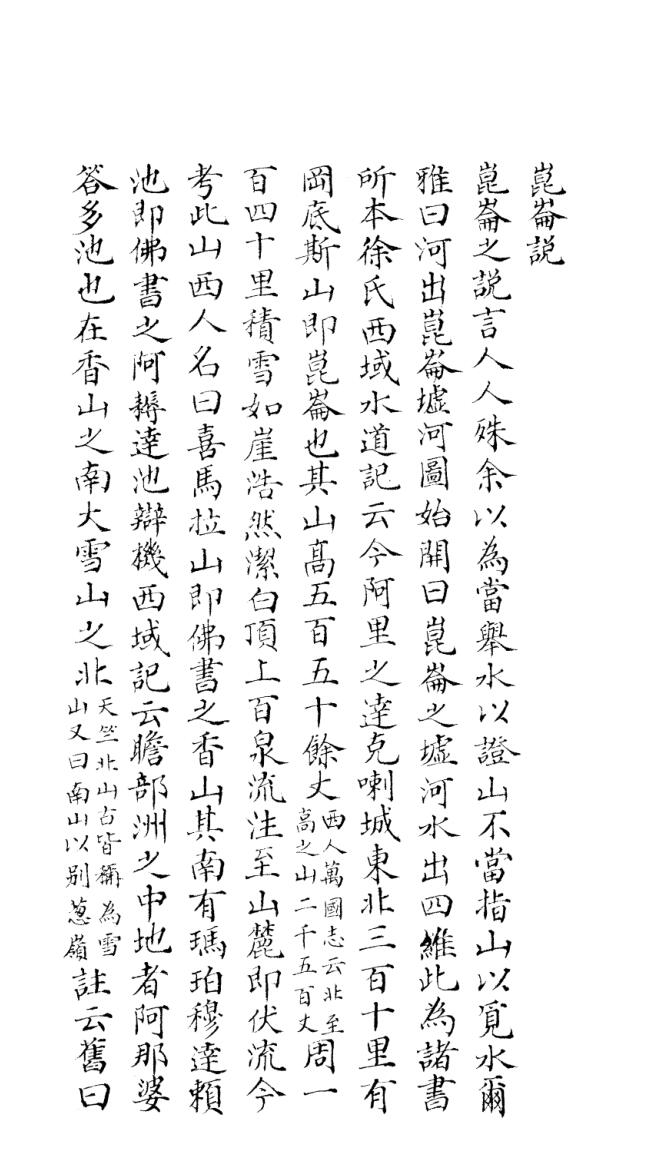 崑崙説
崑崙之説言人人殊余以為當舉水以證山不當指山以覓水爾
雅曰河出崑崙墟河圖始開曰崑崙之墟河水出四維此為諸書
所本徐氏西域水道記云今阿里之達克喇城東北三百十里有
岡底斯山即崑崙也其山髙五百五十餘丈西人萬國志云北至高之山二千五百丈周一
百四十里積雪如崖浩然潔白頂上百泉流注至山麓即伏流今
考此山西人名曰喜馬拉山即佛書之香山其南有瑪珀穆達賴
池即佛書之阿耨達池辯機西域記云瞻部洲之中地者阿那婆
答多池也在香山之南大雪山之北天竺北山古皆稱為雪山又曰南山以别葱嶺註云舊曰